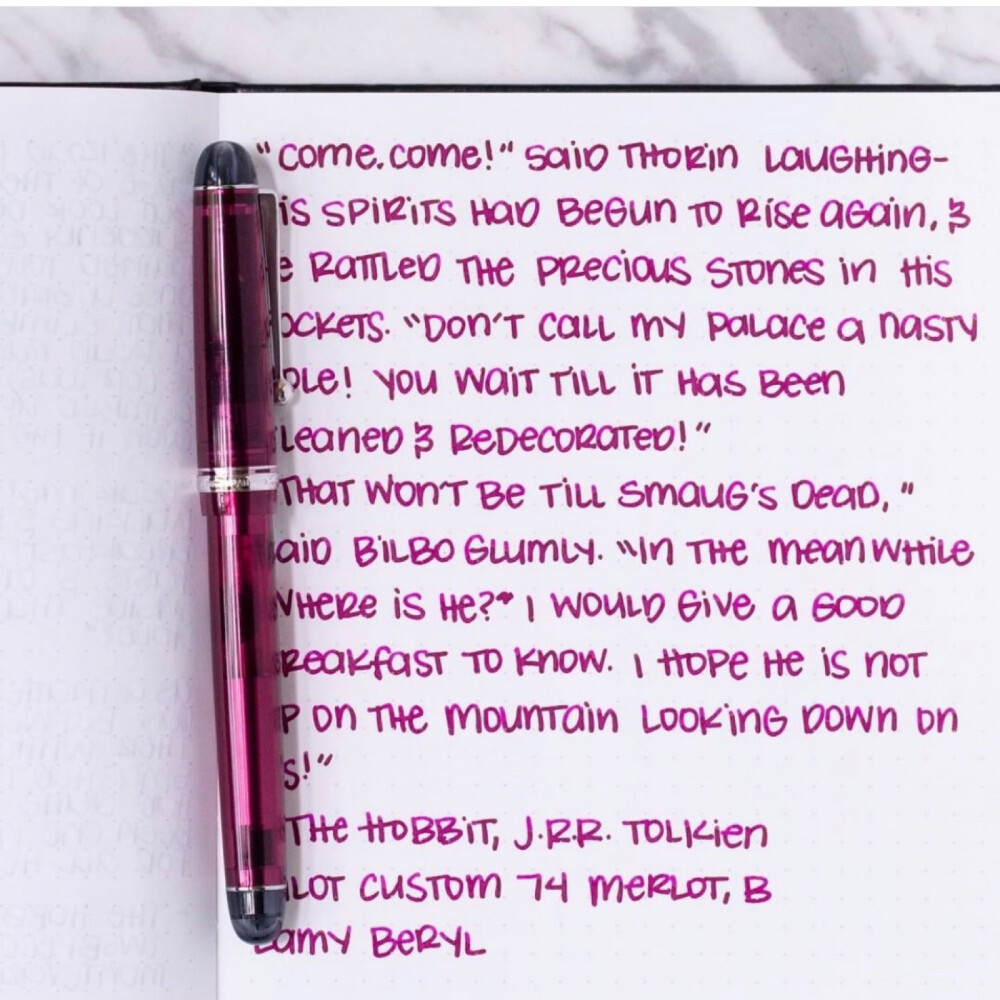 "Come, come!" said Thorin laughing-
is spirits had begun to rise again, &
e rattled the precious stones in his
ockets. "Don't call my palace a nasty
ole! You wait till it has been
leaned & redecorated!"
"That won't be till Smaug's dead,"
aid Bilbo glumly. "In the meanwhile
where is he?" I would give a good
breakfast to know. I hope he is not
p on the mountain looking down on
s!"
The Hobbit, J.R.R. Tolkien
ilot Custom 74 Merlot, B
Lamy Beryl